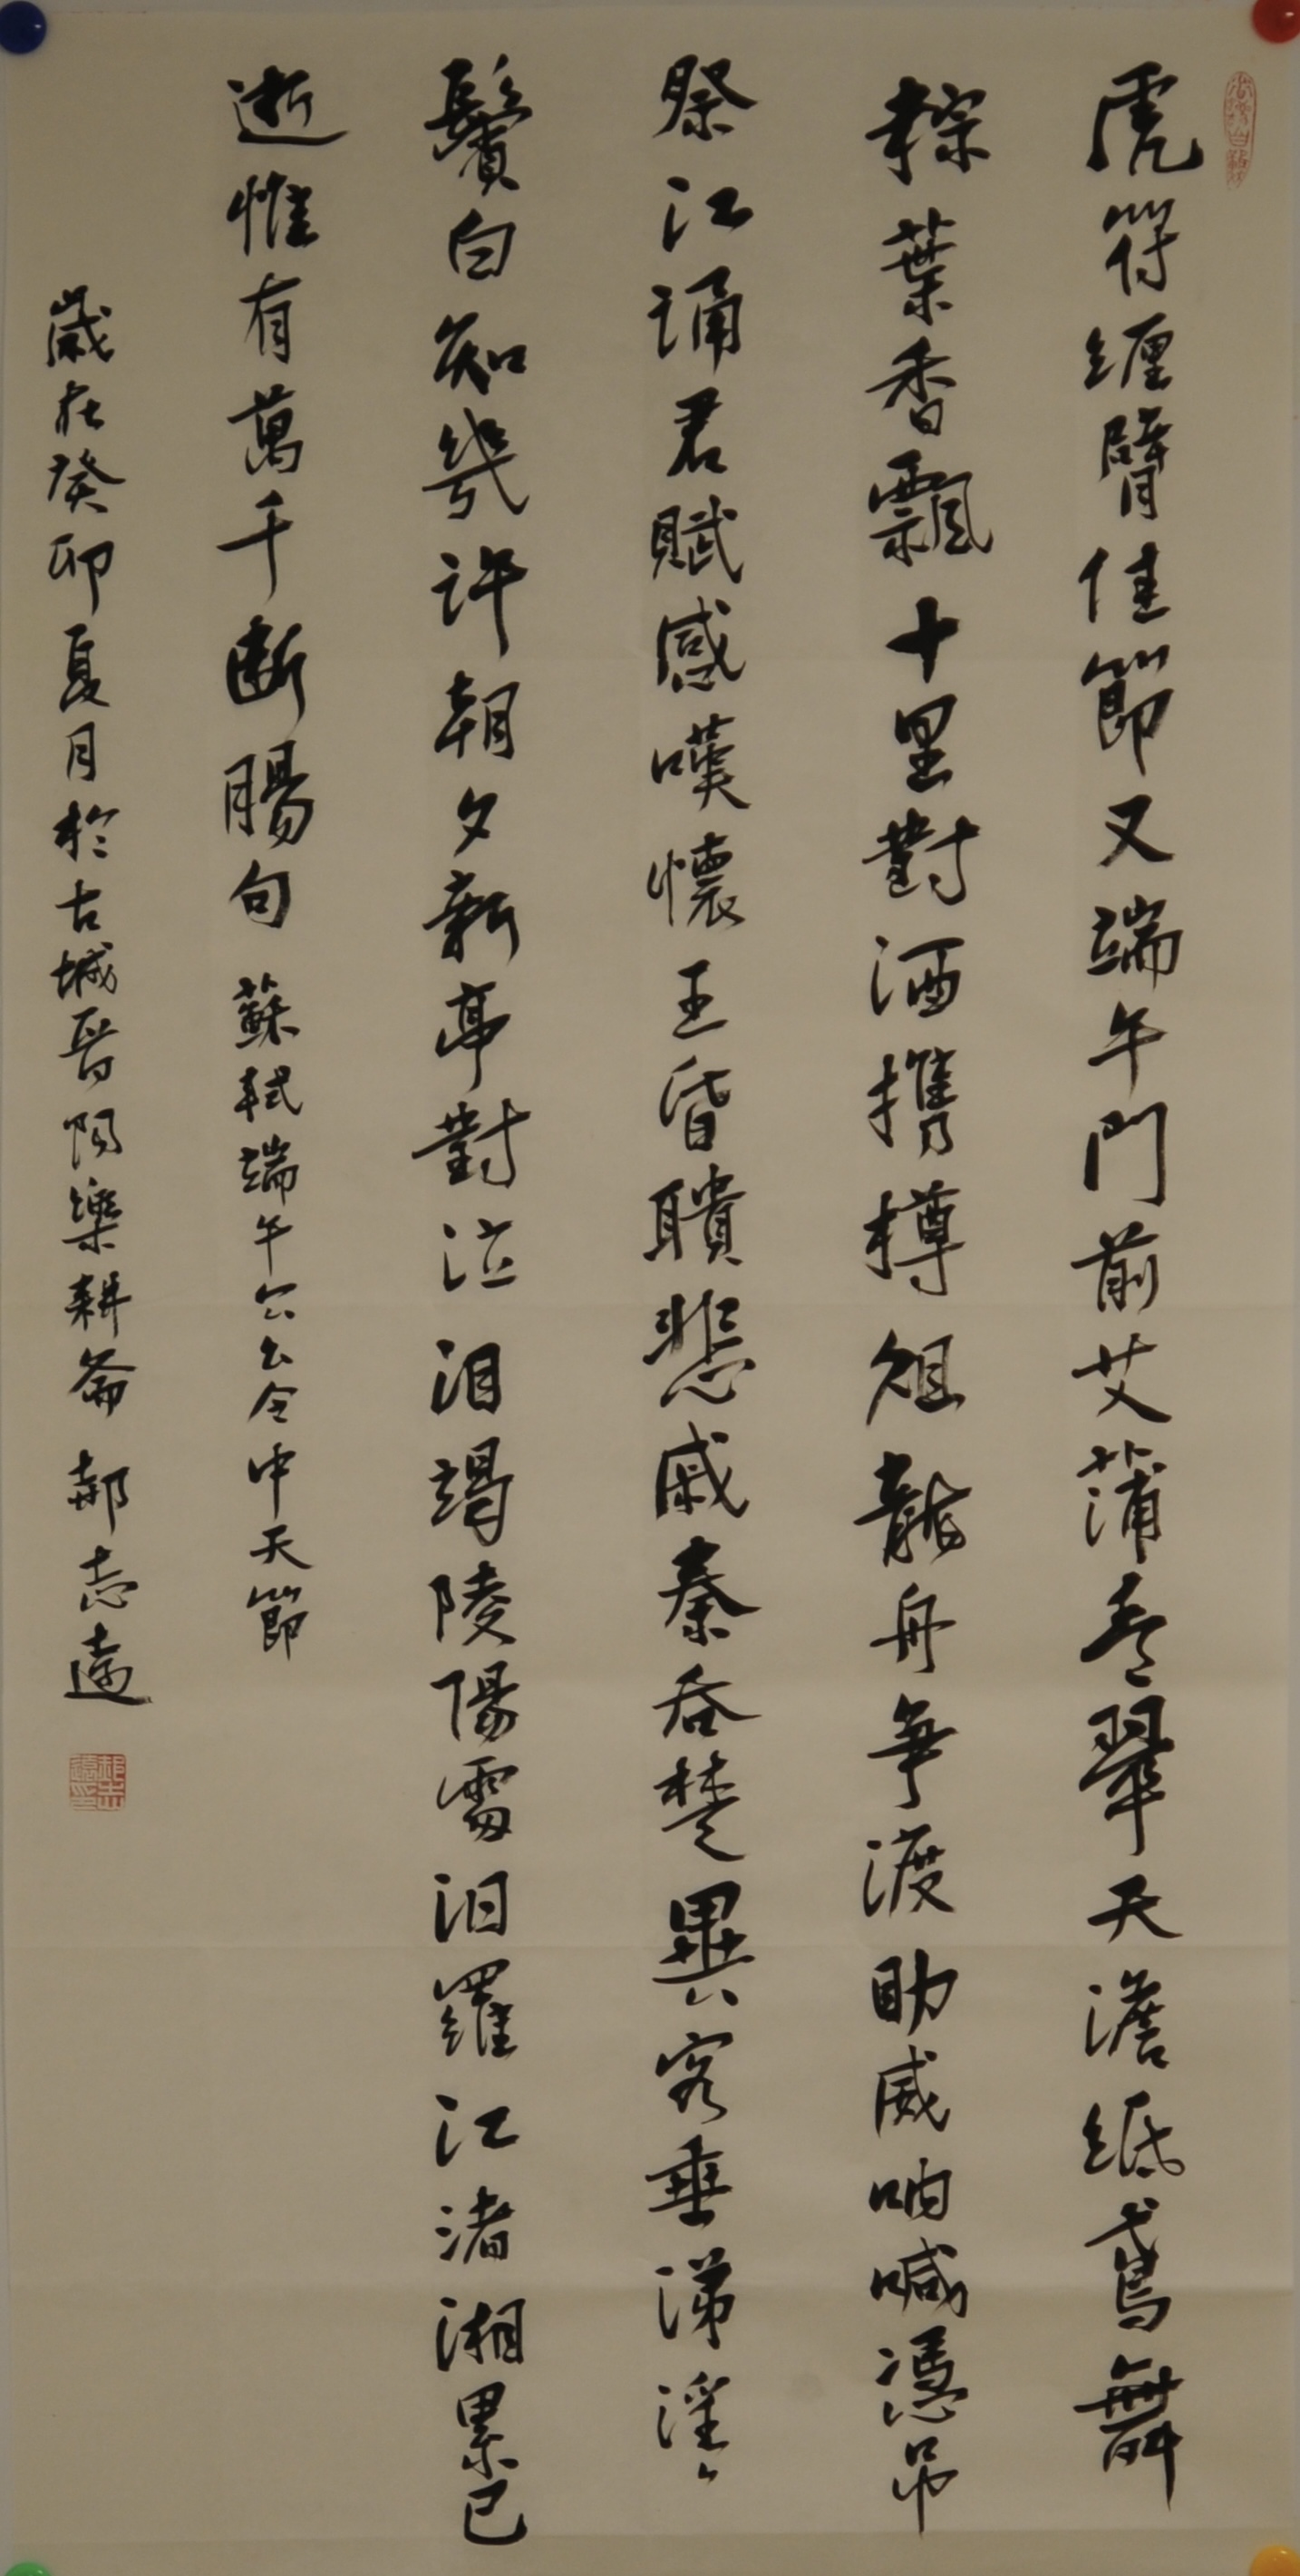 虎符缠臂佳節又端午門前艾蒲青翠天澹紙鳶舞
粽葉香飄十里對酒攜樽俎龍舟争渡助威呐喊憑吊
祭江誦君賦感嘆懷王昏聵悲戚秦吞楚異客垂涕淫〻
鬢白知幾許朝夕新亭對泣泪竭陵陽處汨羅江渚湘累已
逝惟有萬千断腸句 蘇軾端午六幺令中天節
歲在癸卯夏月於古城晉陽樂耕斋 郝志遠